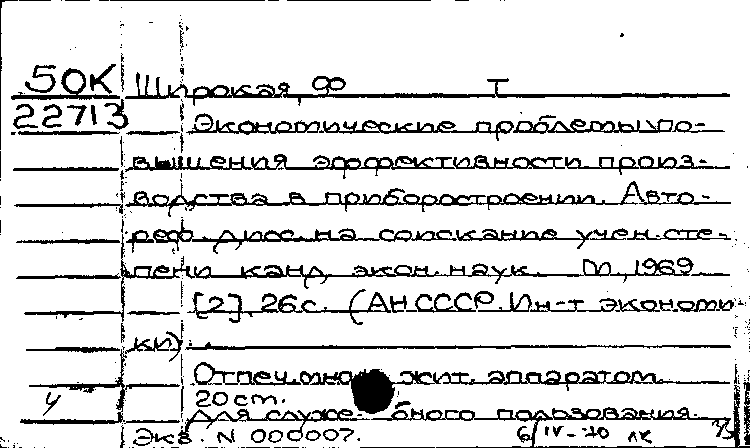 50К Широкая, Ф Т
22713 Экономические проблемы по-
вышения эффективности произ-
водства в приборостроении. Авто-
реф. дисс. на соискание учен. сте-
пени канд. экон. наук. М., 1969
[2], 26с. (АН СССР. Ин-т экономи
ки).
Отпеч. множит. аппаратом.
20 ст.
Для служебного пользования.
Экз N 000007.